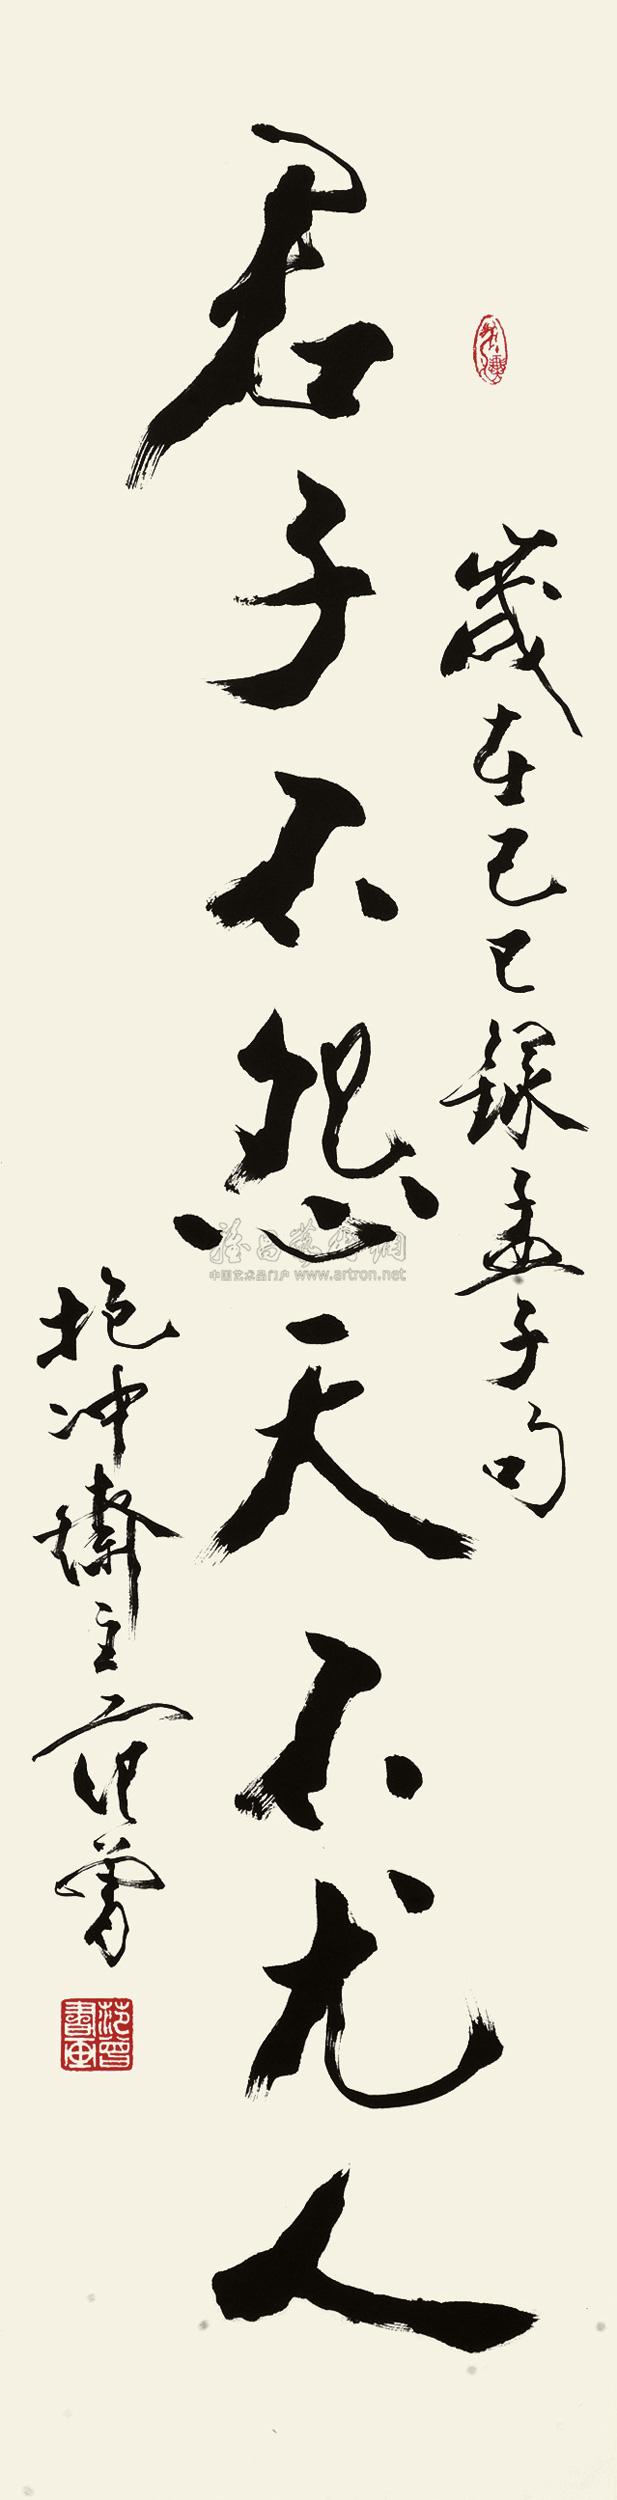 岁在己巳录孟子句
君子不怨天不尤人
抱冲斋主范曾
范曾書画
雅昌藝術網
中国艺术品门户 www.artron.net